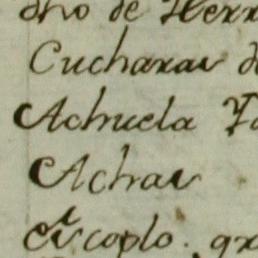 dho de Herr
Cucharas d
Achuela Y
Achas
Escoplo. gr